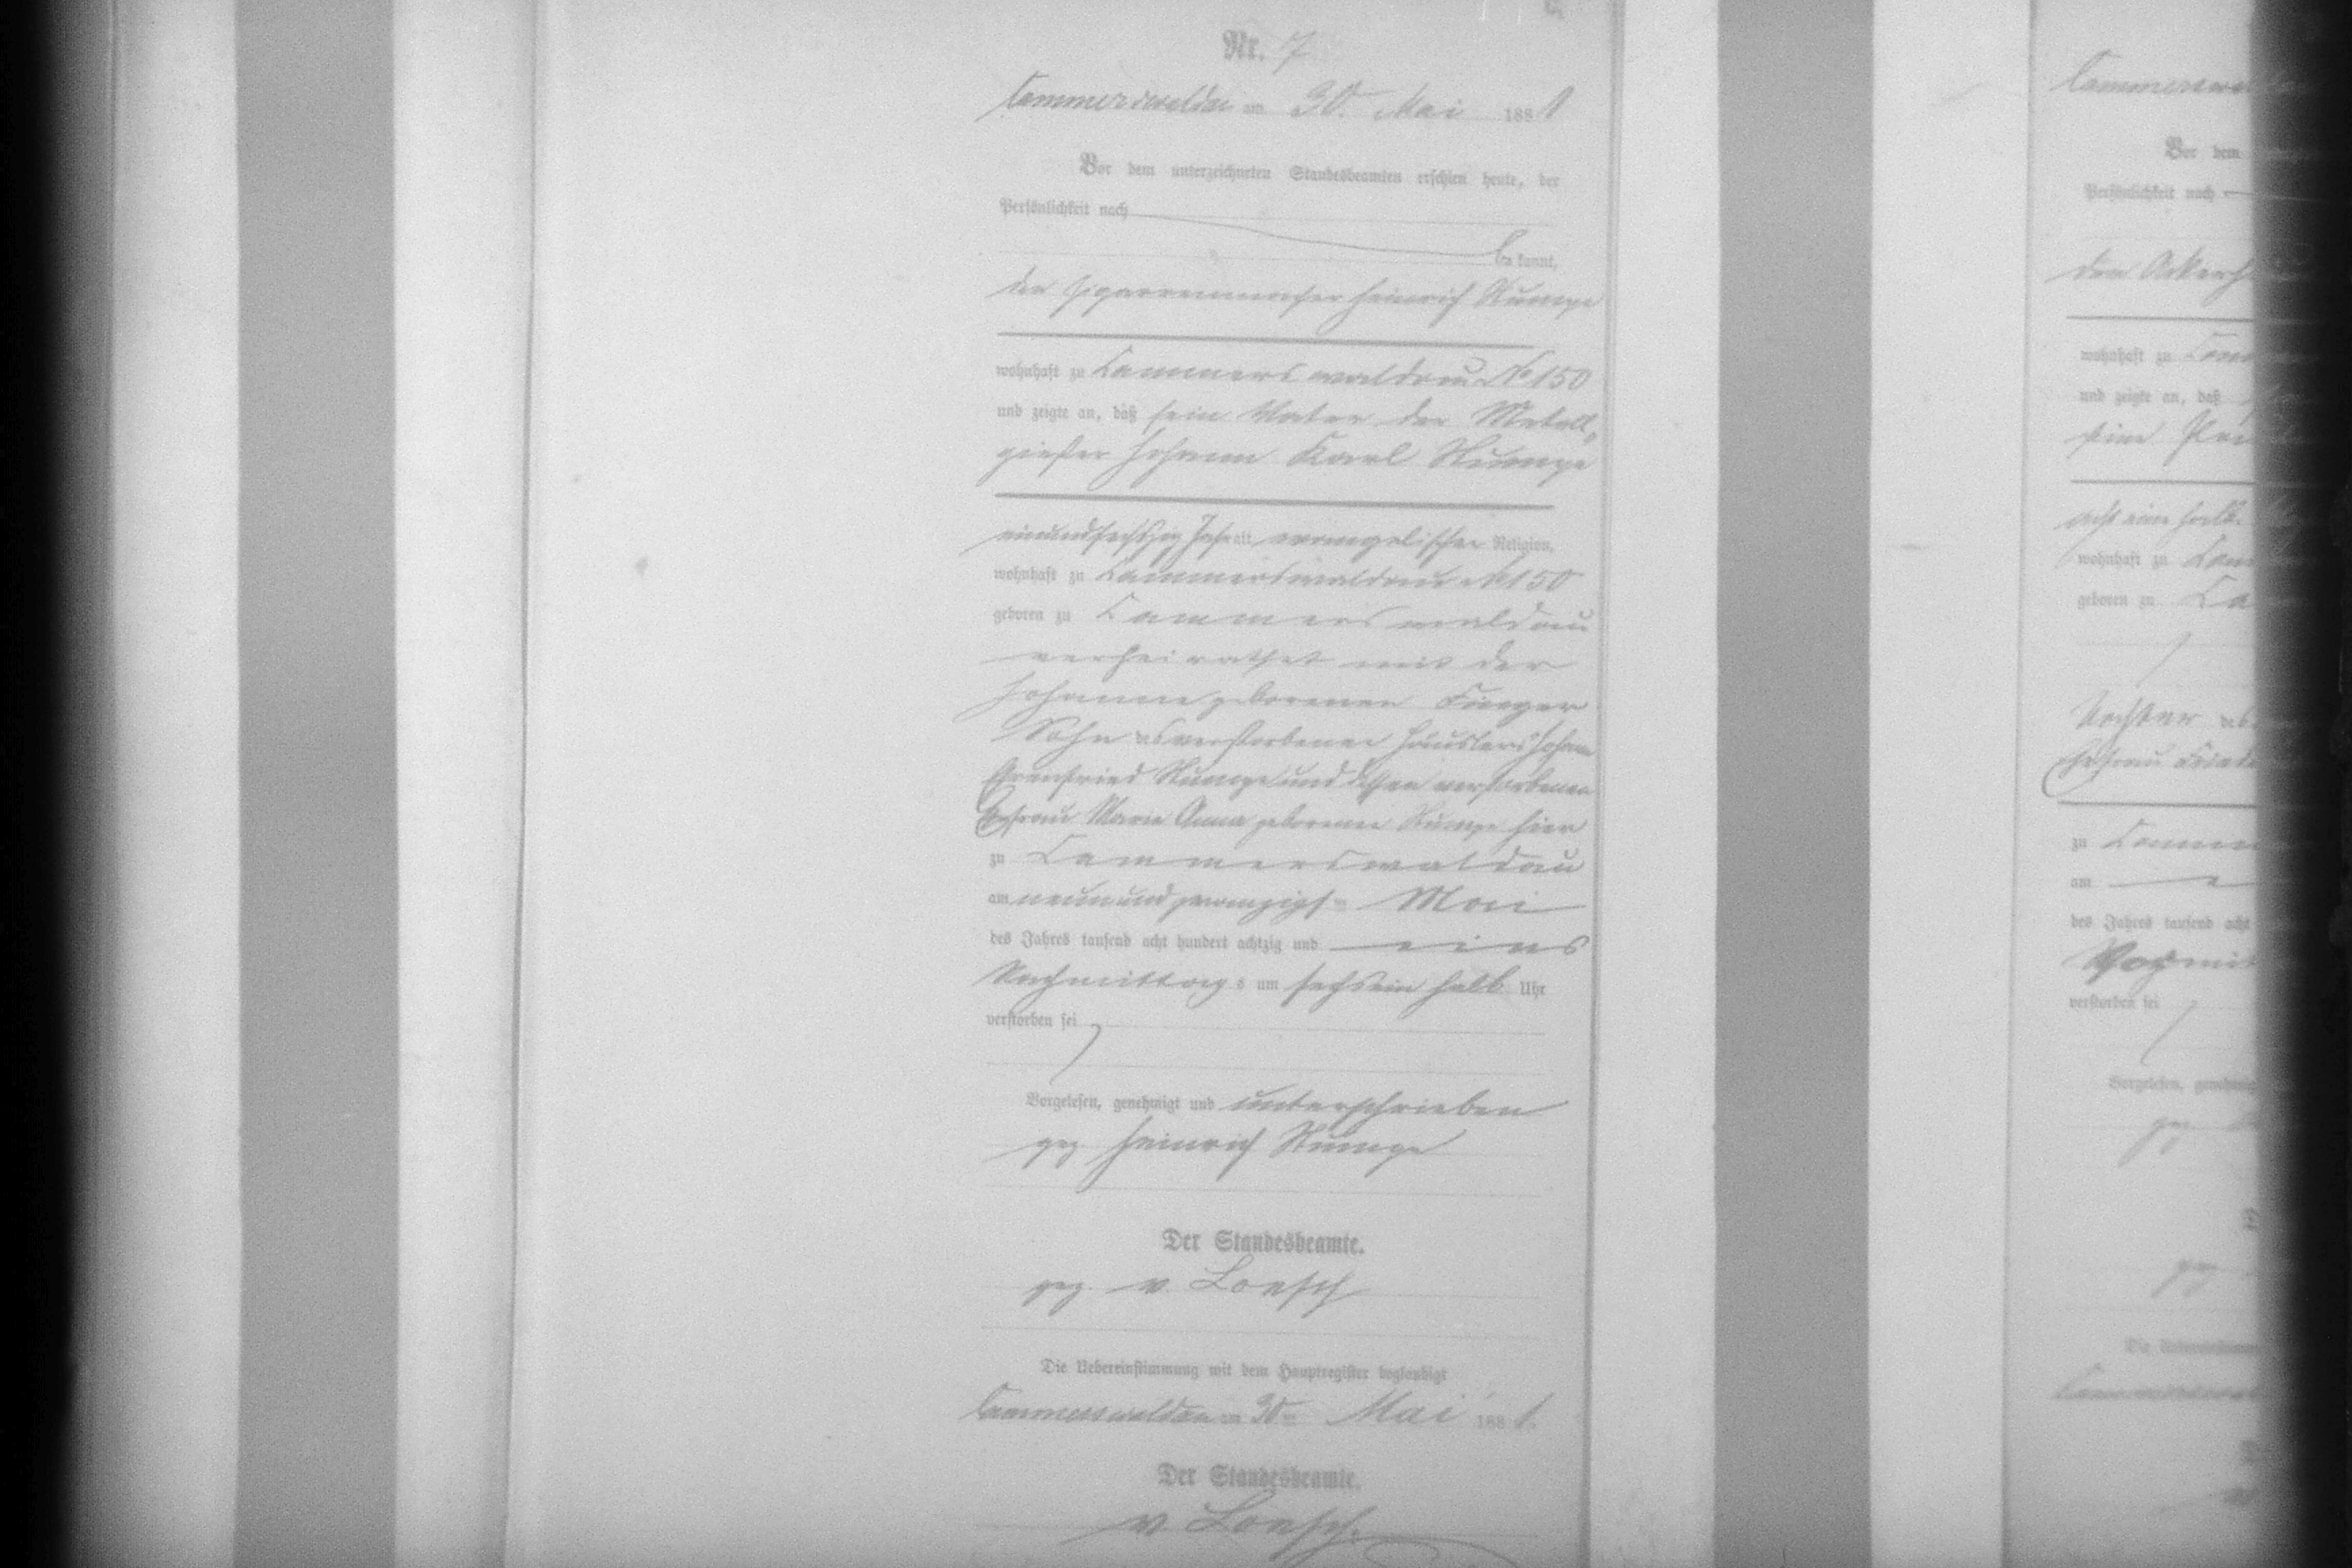 Nr. 7
Cammerswaldau am 30. Mai 1881
Vor dem unterzeichneten Standesbeamten erschien heute, der
Persönlichkeit nach
be kannt,
der Cigarrenmacher Heinrich Rümpe
wohnhaft zu Cammerswaldau No 150
und zeigte an, daß sein Vater der Metall-
gießer Johann Karl Rümpe
einundsechszig Jahr alt, evangelischer Religion,
wohnhaft zu Cammerswaldau No 150
geboren zu Cammerswaldau
verheirathet mit der
Johanne geborenen
Sohn des verstorbenen Häuslers Johann
Ehrenfried Rümpe und dessen verstorbenen
Ehefrau Marie Anna geborene Rümpe hier
zu Cammerswaldau
am neunundzwanzigsten Mai
des Jahres tausend acht hundert achtzig und eins
Nachmittags um sechs ein halb Uhr
verstorben sei
Vorgelesen, genehmigt und unterschrieben
gez Heinrich Rümpe
Der Standesbeamte.
gez. v. Loesch
Die Uebereinstimmung mit dem Hauptregister beglaubigt
Cammerswaldau am 30ten Mai 1881.
Der Standesbeamte.
v. Loesch.
Vor dem
Persönlichkeit nach
den
wohnhaft zu
und zeigte an, daß
seine
acht ein halb
wohnhaft zu
geboren zu
Tochter des
Ehefrau
zu
am
des Jahres tausend acht
verstorben sei
Vorgelesen, genehmigt
gez